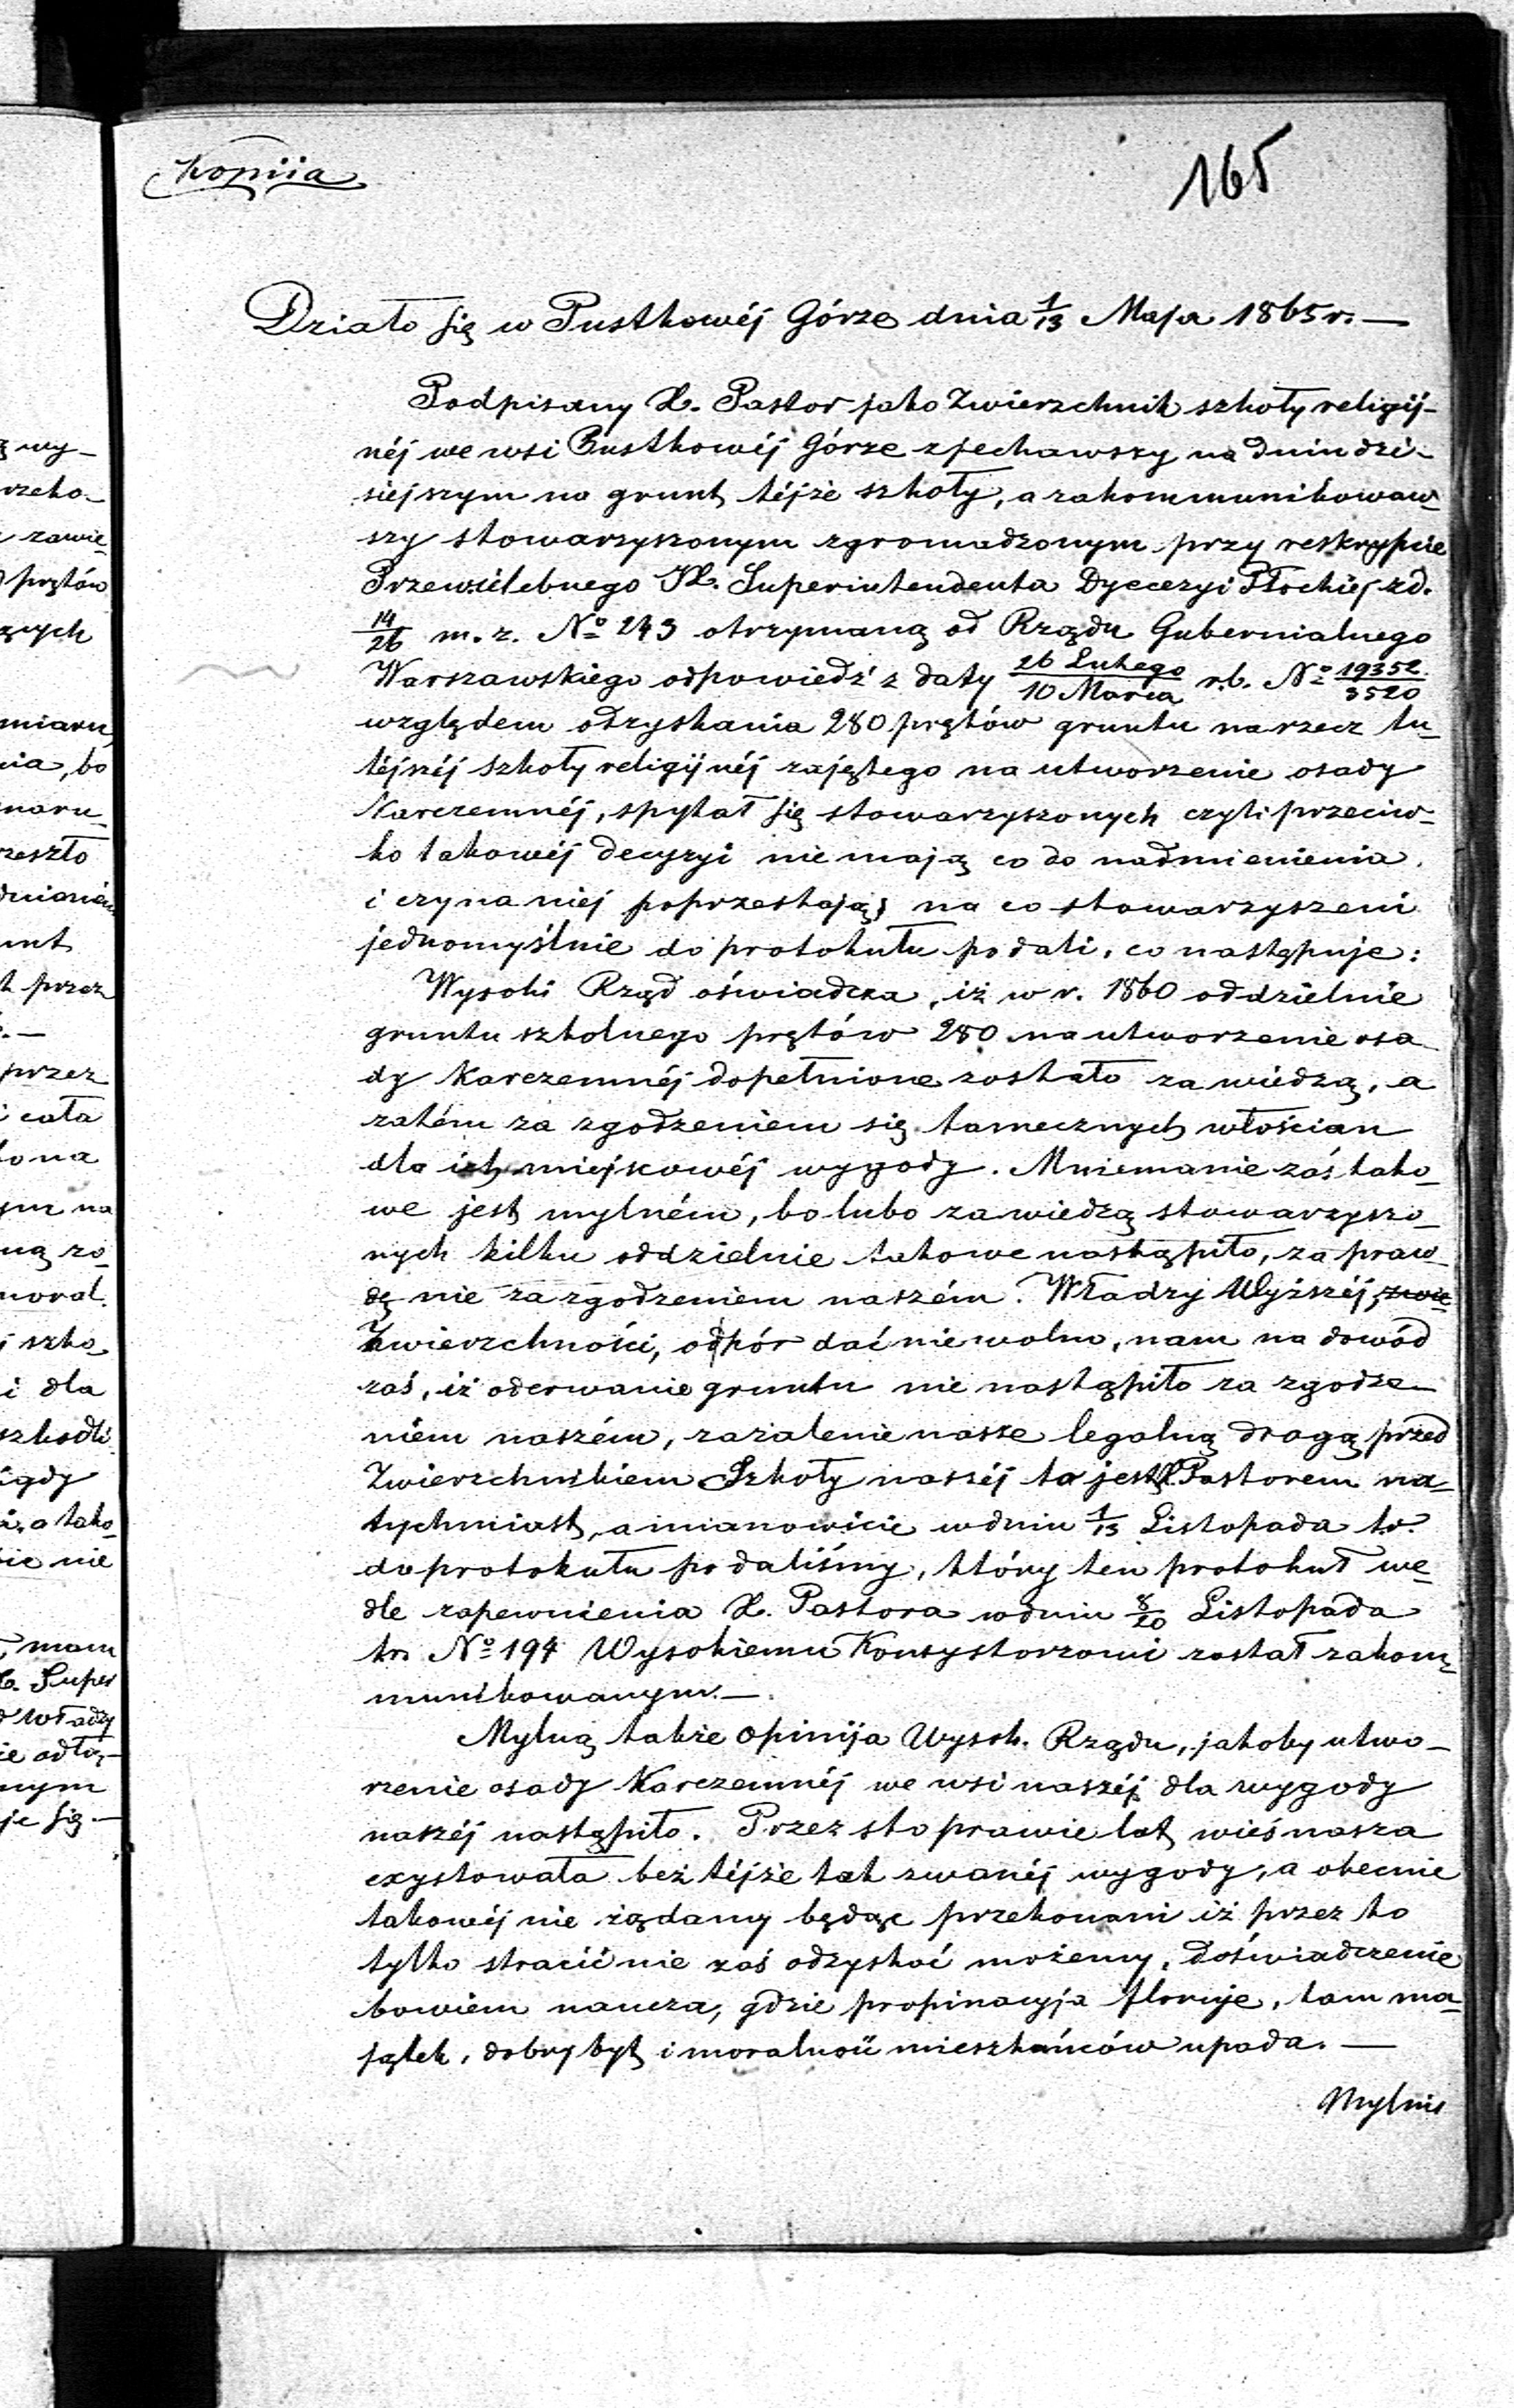 Kopiia
165
Działo się w Pustkowéj Górze dnia 1/13 Maja 1865 r. —
Podpisany X. Pastor jako Zwierzchnik szkoły religij-
néj we wsi Pustkowéj Górze zjechawszy na dniu dzi-
siejszym na grunt téjże szkoły, a zakommunikowaw-
szy stowarzyszonym zgromadzonym przy reskrypcie
Przewielebnego X. Superintendenta Dyecezyi Płockiej z d.
14/26 m. z. No 243 otrzymaną od Rządu Gubernialnego
Warszawskiego odpowiedź z daty 26 Lutego/10 Marca r.b. No 19352/3520
względem odzyskania 280 prętów gruntu na rzecz tu-
téjszéj szkoły religijnéj zajętego na utworzenie osady
Karczemnéj, spytał się stowarzyszonych czyli przeciw-
ko takowéj decyzyi nie mają co do nadmienienia,
i czy na niéj poprzestają; na co stowarzyszeni
jednomyślnie do protokułu podali, co następuje:
Wysoki Rząd oświadcza, iż w r. 1860 oddzielnie
gruntu szkolnego prętów 280 na utworzenie osa-
dy Karczemnéj dopełnione zostało za wiedzą, a
zatém za zgodzeniem się tamecznych włościan
dla ich miejscowéj wygody. Mniemanie zaś tako-
we jest mylném, bo lubo za wiedzą stowarzyszo-
nych kilku oddzielnie takowe nastąpiło, za praw-
dę nie za zgodzeniem naszém. Władzy Wyższéj, zwie
Zwierzchności, odpór dać nie wolno, nam na dowód
zaś, iż oderwanie gruntu nie nastąpiło za zgodze-
niem naszém, zażalenie nasze legalną drogą przed
Zwierzchnikiem Szkoły naszéj to jest X. Pastorem na-
tychmiast, a mianowicie w dniu 1/13 Listopada t.r.
do protokułu podaliśmy, który ten protokuł we-
dle zapewnienia X. Pastora w dniu 8/20 Listopada
t.r. No 194 Wysokiemu Konsystorzowi został zakom-
munikowanym. —
Mylną także opinija Wysok. Rządu, jakoby utwo-
rzenie osady Karczemnéj we wsi naszéj dla wygody
naszéj nastąpiło. Przez sto prawie lat wieś nasza
exystowała bez téjże tak zwanéj wygody, a obecnie
takowéj nie żądamy będąc przekonani iż przez to
tylko stracić nie zaś odzyskać możemy, doświadczenie
bowiem naucza, gdzie propinacyja floruje, tam ma-
jątek, dobry byt i moralność mieszkańców upada. —
Mylnie